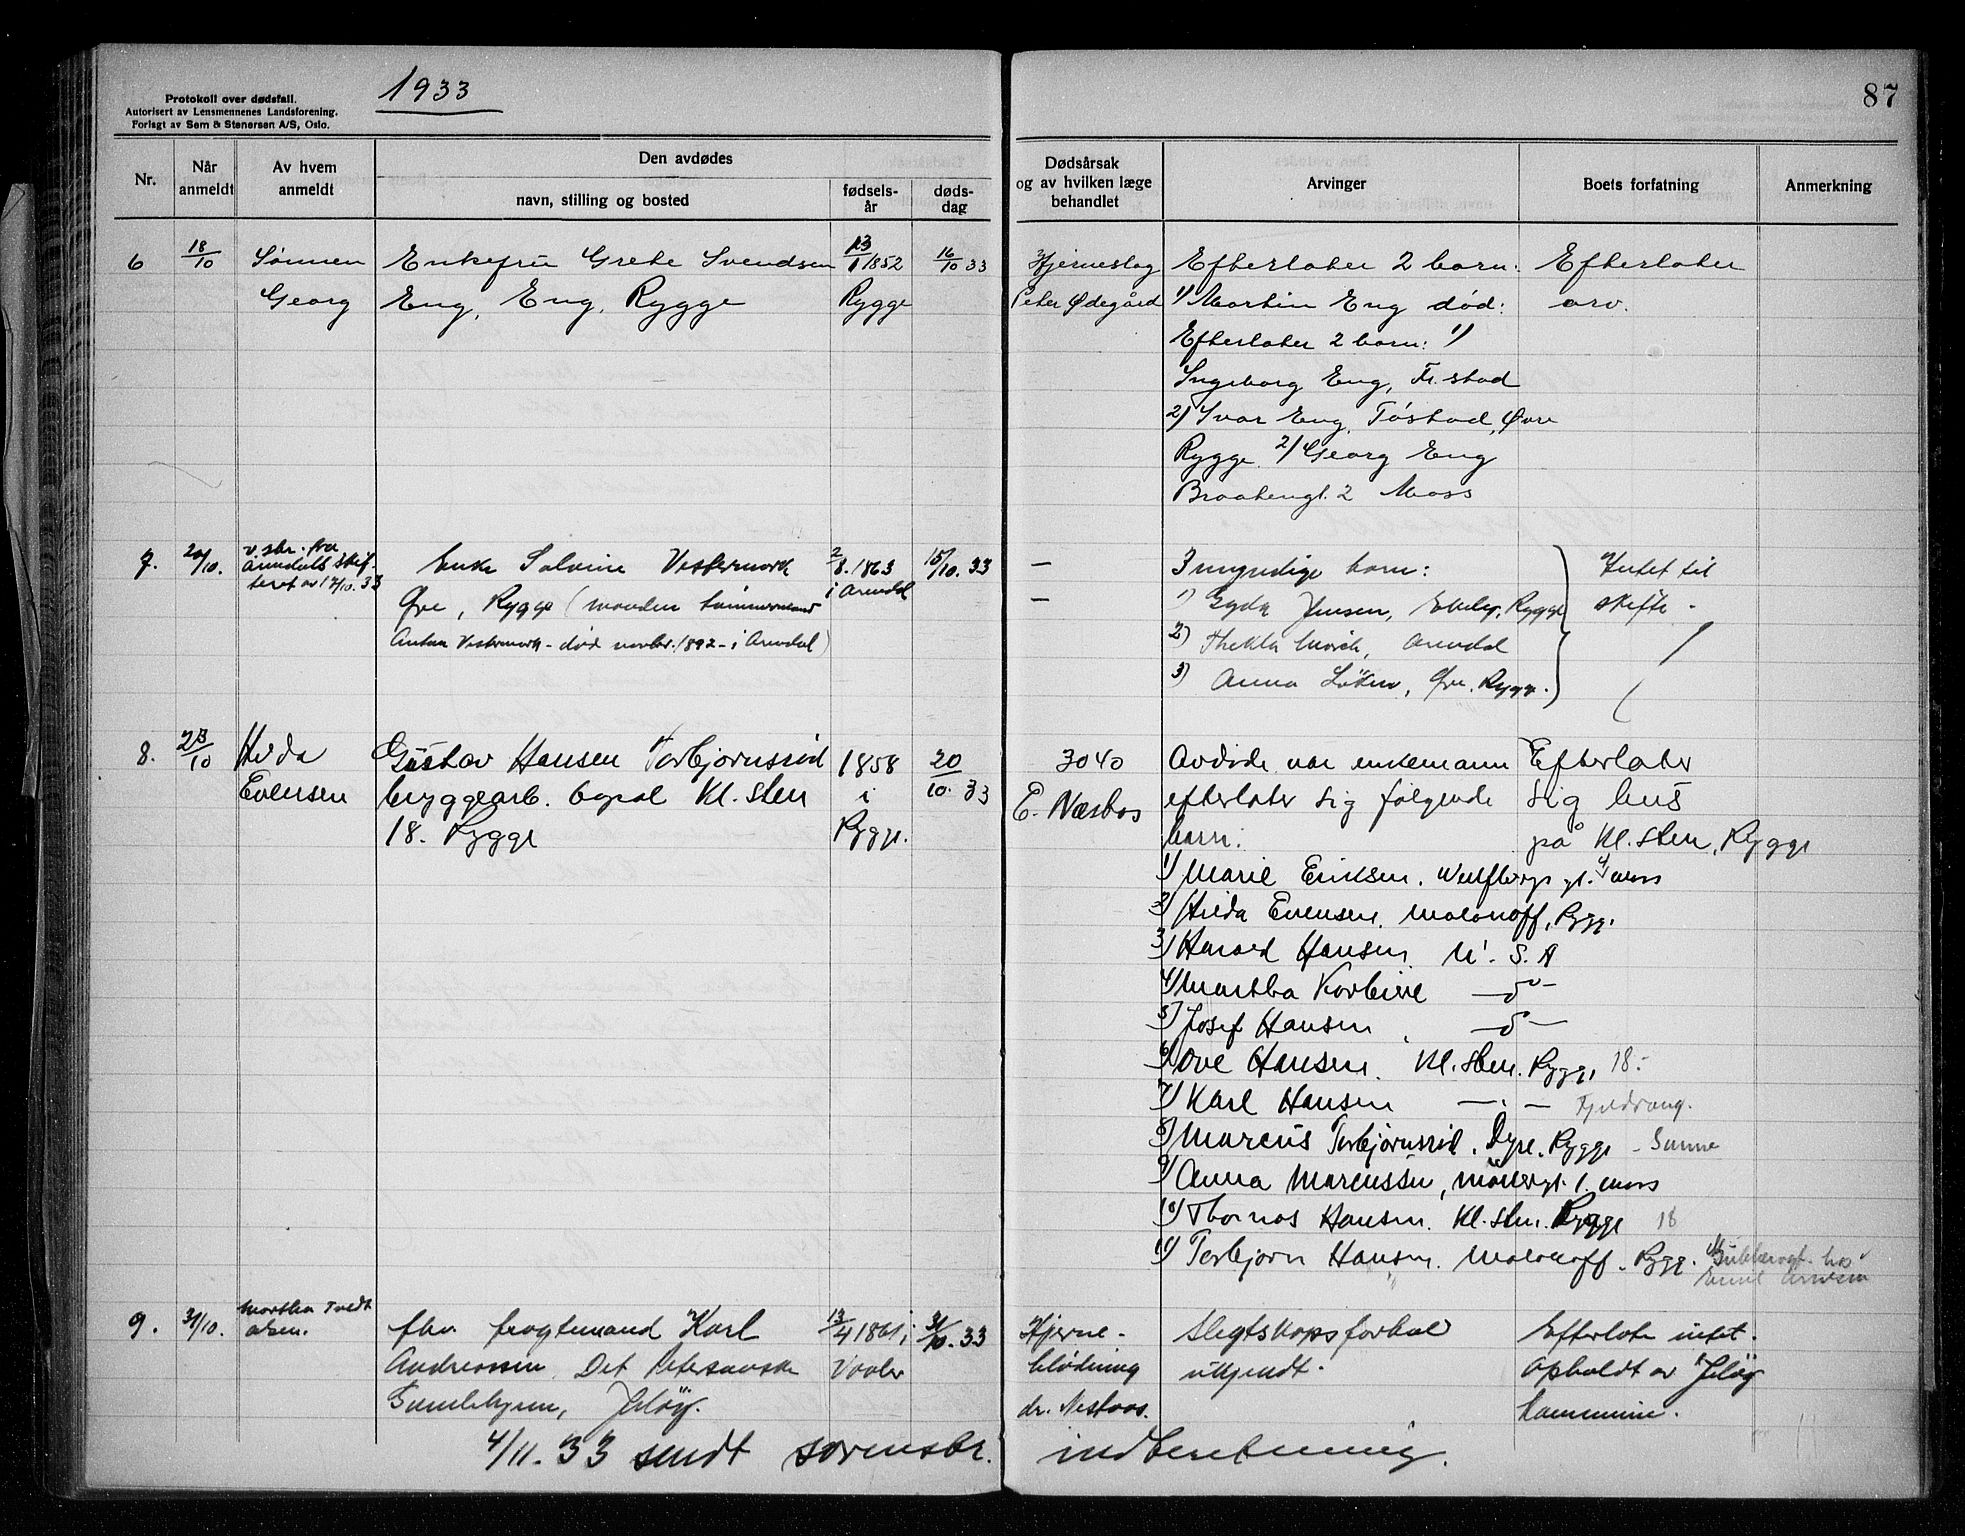 1933
87
Protokoll over dødsfall.
Autorisert av Lensmennenes Landsforening.
Forlagt av Sem & Stenersen A/S, Oslo.
Nr.
Når anmeldt
Av hvem anmeldt
Den avdødes
navn, stilling og bosted
fødsels-år
døds-dag
Dødsårsak og av hvilken læge behandlet
Arvinger
Boets forfatning
Anmerkning
6 18/10 Sønnen Enkefru Grete Svendsen 1852 16/10 33 Hjerneslag Efterlater 2 barn: Efterlater
Georg Eng, Eng, Rygge Rygge Peter Ødegård 1) Martin Eng død: arv.
Efterlater 2 barn: 1)
Ingeborg Eng, Fr.stad
2) Ivar Eng, Tøstad, Øvre
Rygge. 2) Georg Eng
Braatengt. 2 Moss
7. 20/10. v. skr. fra Enke Salvine Vestermork 2/8. 1863 15/10. 33 — 3 myndige barn: Intet til
Arendals skif- i Arendal
teret av 17/10. 33 Øre, Rygge (manden tømmermand — 1) Gyda Jensen, Ekeby, Rygge skifte.
Anton Vestermork - død novbr. 1892 - i Arendal) 2) Thekla Mørch, Arendal
3) Anna Løken, Øre, Rygge.
8. 23/10 Hilda Gustav Hansen Torbjørnsrød 1858 20/10. 33 3040 Avdøde var enkemann Efterlater
Evensen bryggearb. bopæl Kl. Sten i E. Næsbos efterlater sig følgende sig hus
18. Rygge Rygge. barn: på Kl. Sten, Rygge
1) Marie Eriksen. Wulfbergs gt. 4, Moss
2) Hilda Evensen. Malakoff, Rygge.
3) Harald Hansen. U. S. A
4) Martha —do—
5) Josef Hansen —do—
6) Ove Hansen. Kl. Sten. Rygge, 18.-
7) Karl Hansen — . — Fjeldvang.
8) Marcus Torbjørnsrød. Dyre. Rygge -
9) Anna Marcussen, Møllergt. 1. Moss
10) Thomas Hansen. Kl. Sten. Rygge 18
11) Torbjørn Hansen. Malakoff. Rygge. hos
Emil Arnesen
9. 31/10. Martha Tvedt fhv. fragtemand Karl 13/4 1861 i 31/10. 33 Hjerne- Slegtskapsforhol Efterlater intet.
Olsen. Andreassen. Det Petersonske Vaaler blødning ukjendt. Opholdt av Jeløy
Gamlehjem, Jeløy. dr. Nesbos. kommune.
4/11. 33 sendt sorenskr. indberetning.